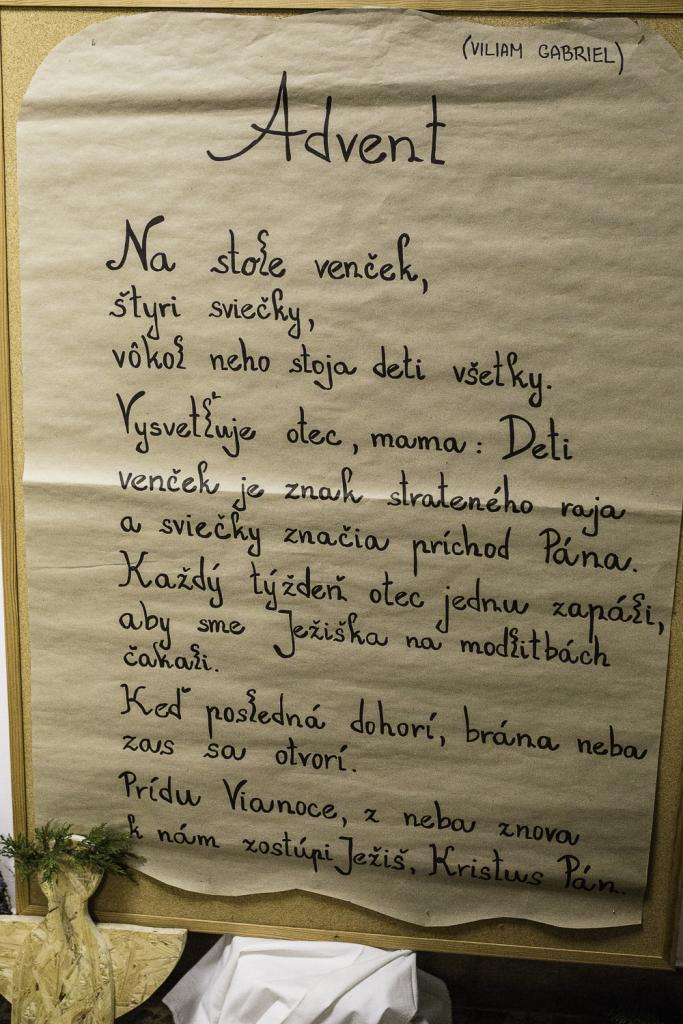 (VILIAM GABRIEL)
Advent
Na stole venček,
štyri sviečky,
vôkol neho stoja deti všetky.
Vysvetľuje otec, mama: Deti
venček je znak strateného raja
a sviečky značia príchod Pána.
Každý týždeň otec jednu zapáli,
aby sme Ježiška na modlitbách
čakali.
Keď posledná dohorí, brána neba
zas sa otvorí.
Prídu Vianoce, z neba znova
k nám zostúpi Ježiš, Kristus Pán.